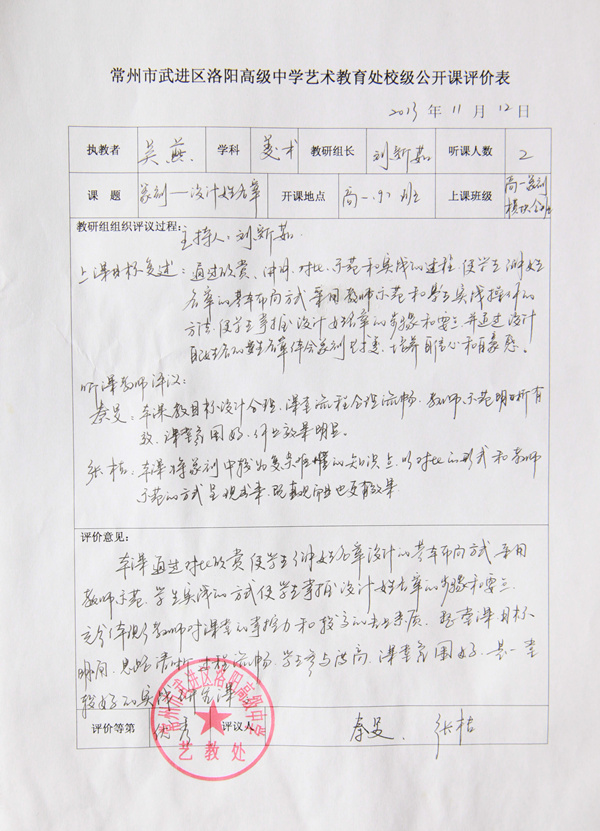 常州市武进区洛阳高级中学艺术教育处校级公开课评价表
2013 年 11 月 12 日
执教者 吴燕 学科 美术 教研组长 刘新茹 听课人数 2
课 题 篆刻—设计姓名章 开课地点 高一.9）班 上课班级 高一篆刻模块合班
教研组组织评议过程:
主持人：刘新茹
上课目标复述：通过欣赏、讲解、对比、示范和实践的过程，使学生了解姓
名章的基本布局方式，采用教师示范和学生实践操作的
方法，使学生掌握设计姓名章的步骤和要点，并通过设计
自己姓名的姓名章体会篆刻艺术美，培养自信心和自豪感。
听课教师评议：
秦旻：本课教学目标设计合理，课堂流程合理流畅，教师示范明晰有
效，课堂氛围好，作业效果明显。
张桔：本课将篆刻中较为复杂难懂的知识点，以对比的形式和教师
示范的方式呈现出来，既直观而且也更有效果
评价意见:
本课通过对比欣赏使学生了解姓名章设计的基本布局方式，采用
教师示范，学生实践的方式使学生掌握设计姓名章的步骤和要点
充分体现了教师对课堂的掌控力和较高的专业素质。整堂课目标
明确，思路清晰，过程流畅，学生参与度高，课堂氛围好，是一堂
较好的实践研究课
评价等第 优秀 评议人 秦旻、张桔
常州市武进区洛阳高级中学
艺教处